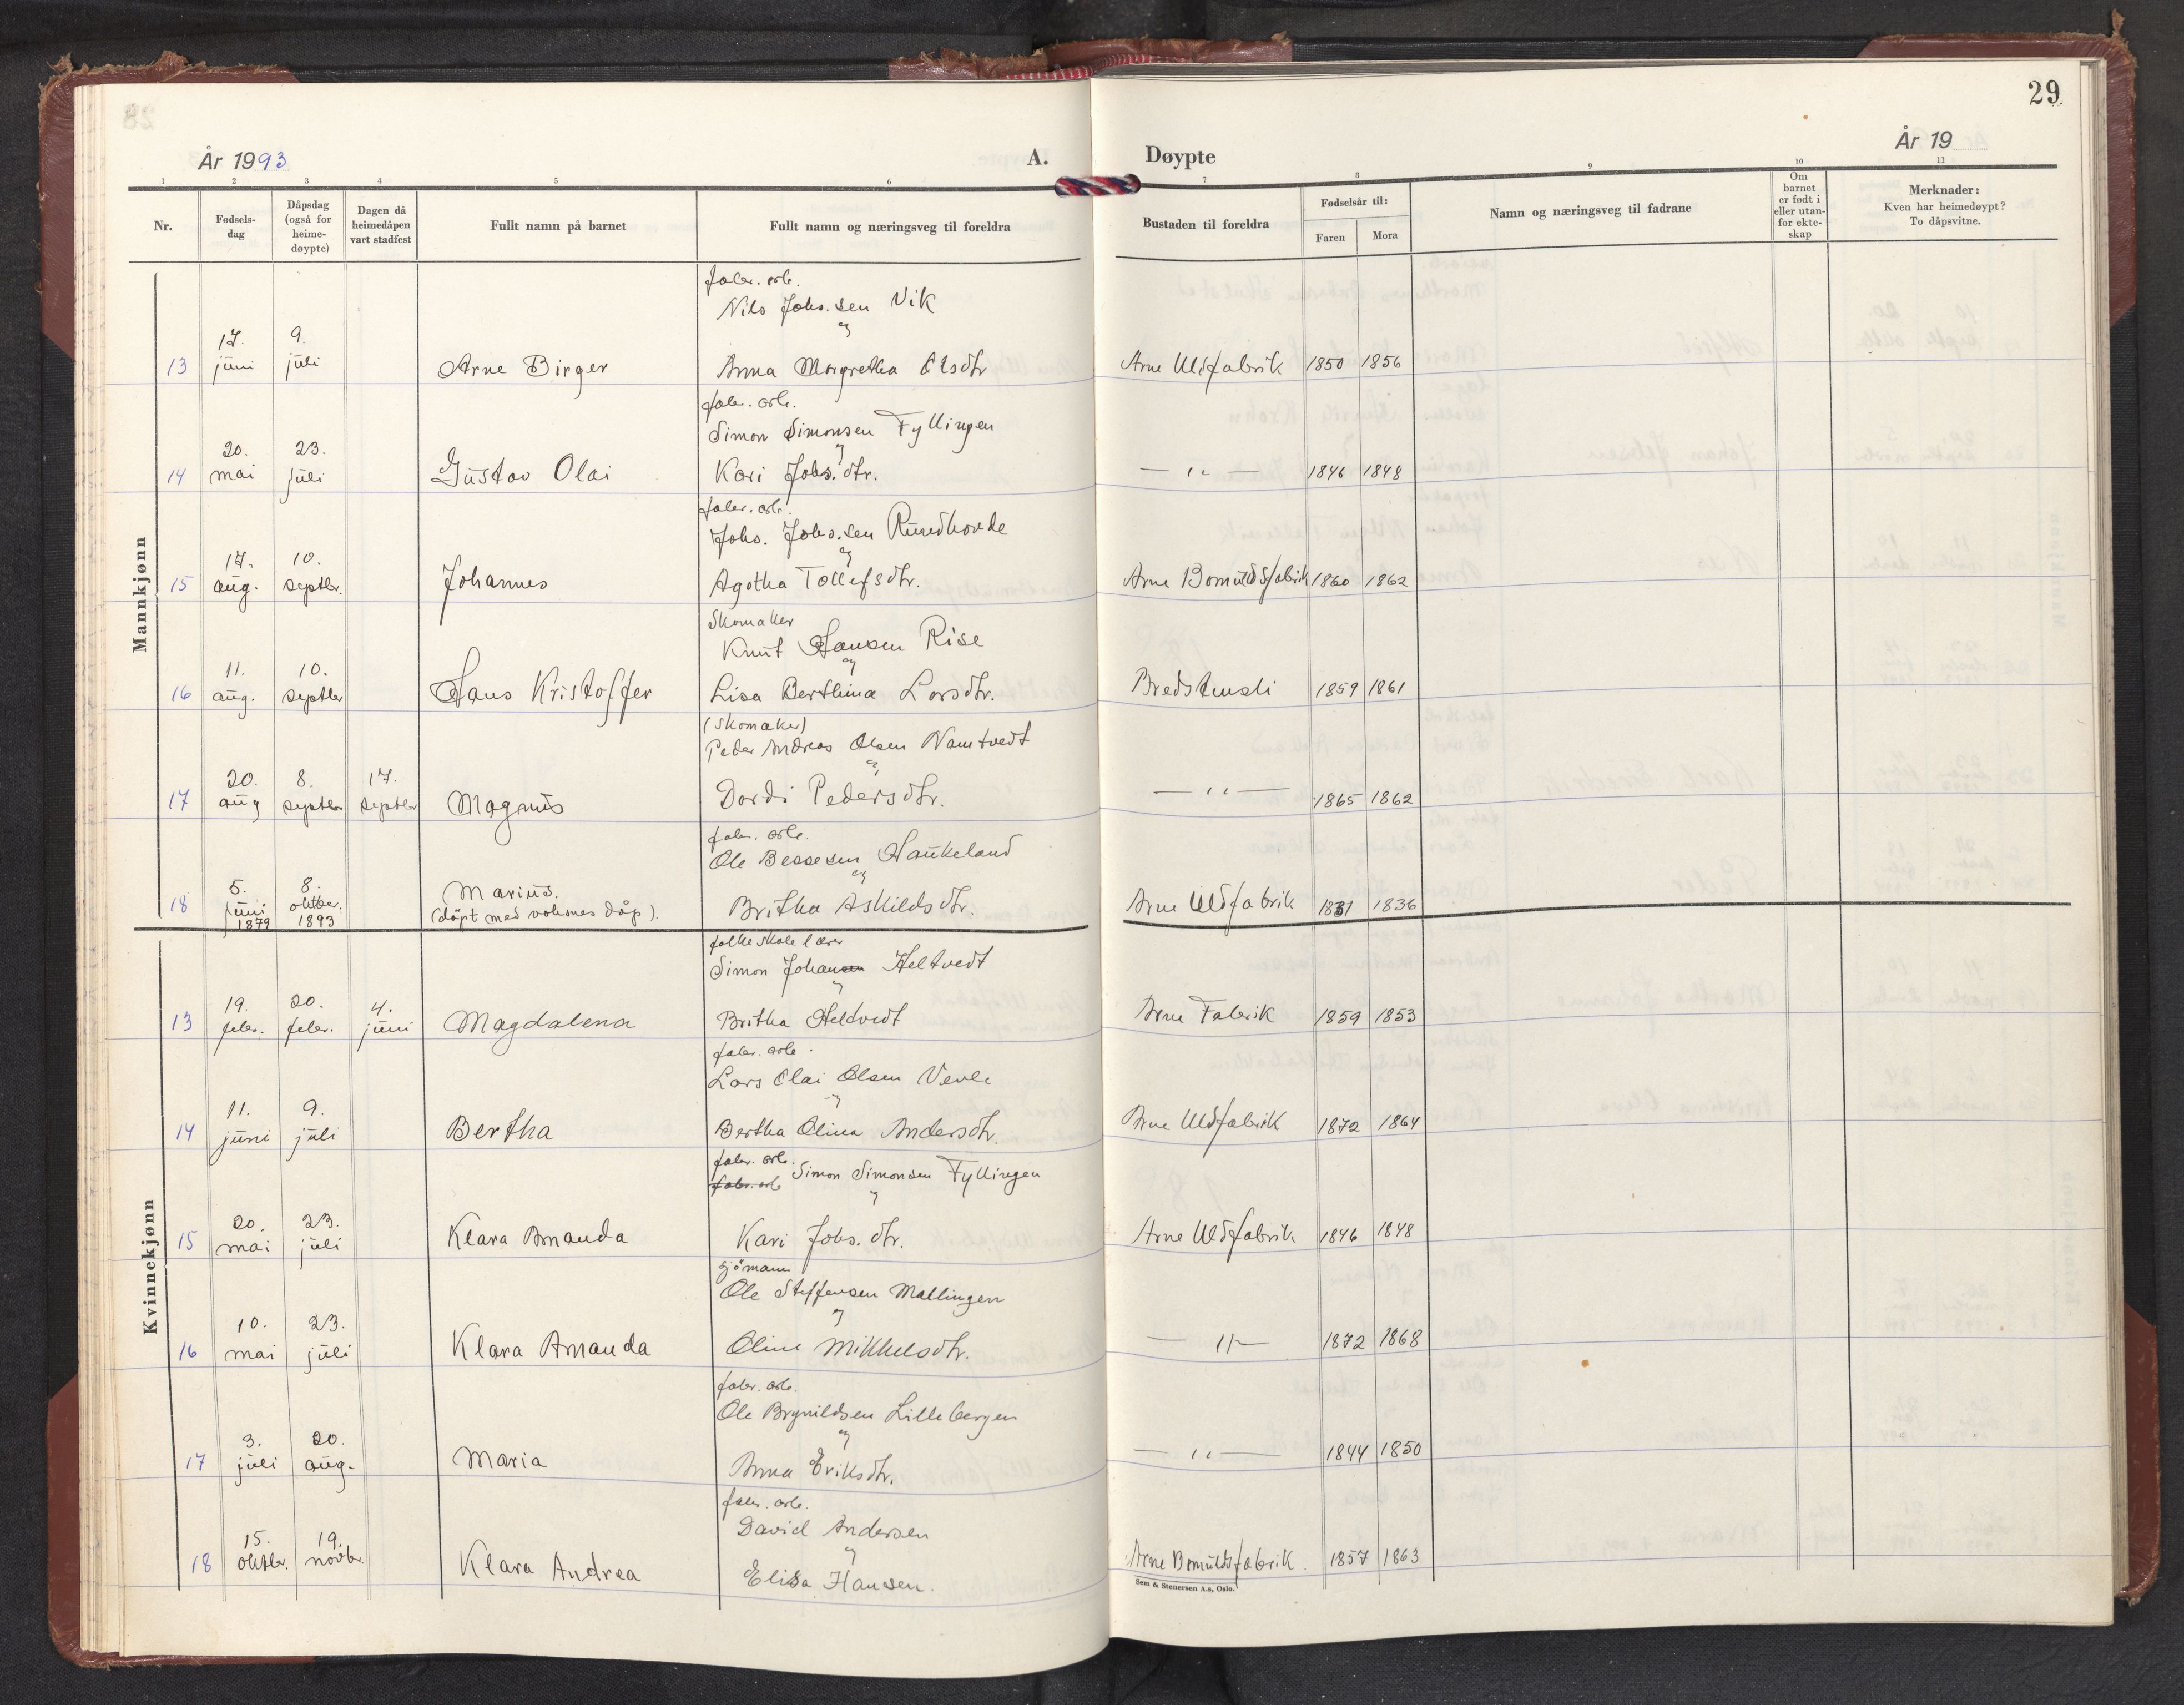 29
År 1993
A.
Døypte
År 19
1 2 3 4 5 6 7 8 9 10 11
Nr.
Fødsels-
dag
Dåpsdag
(også for
heime-
døypte)
Dagen då
heimedåpen
vart stadfest
Fullt namn på barnet
Fullt namn og næringsveg til foreldra
Bustaden til foreldra
Fødselsår til:
Faren
Mora
Namn og næringsveg til fadrane
Om
barnet
er født i
eller utan-
for ekte-
skap
Merknader:
Kven har heimedøypt?
To dåpsvitne.
Mannkjønn
fabr. arb.
Nils Johs.sen Vik
og
13 17. juni 9. juli Arne Birger Anna Margretha Olsdtr Arne Uldfabrik 1850 1856
fabr. arb.
Simon Simonsen Fyllingen
og
14 20. mai 23. juli Gustav Olai Kari Johs.dtr. — " — 1846 1848
fabr. arb.
Johs. Johs.sen Rundhovde
og
15 17. aug. 10. septbr. Johannes Agatha Tollefsdtr. Arne Bomuldsfabrik 1860 1862
Skomaker
Knut Hansen Rise
og
16 11. aug. 10. septbr Hans Kristoffer Lisa Berthina Larsdtr. Bredstuesli 1859 1861
(Skomaker)
Peder Andreas Olsen Namtvedt
og
17 20. aug 8. septbr 17. septbr Magnus Dordi Pedersdtr. — " — 1865 1862
fabr. arb.
Ole Bessesen Haukeland
og
18 5. juni 1879 8. oktbr. 1893 Marius. (döpt med voksnes dåp). Britha Askildsdtr. Arne Uldfabrik 1831 1836
Kvinnekjønn
folkeskolelærer
Simon Johansen Heltvedt
og
13 19. febr. 20. febr. 4. juni Magdalena Britha Heldvedt Arne Fabrik 1859 1853
fabr. arb.
Lars Olai Olsen Vevle
og
14 11. juni 9. juli Bertha Bertha Olina Andersdtr. Arne Uldfabrik 1872 1864
fabr. arb.
fabr. arb Simon Simonsen Fyllingen
og
15 20. mai 23. juli Klara Amanda Kari Johs.dtr. Arne Uldfabrik 1846 1848
sjömann
Ole Steffensen Mellingen
og
16 10. mai 23. juli Klara Amanda Oline Mikkelsdtr. — " — 1872 1868
fabr. arb.
Ole Brynildsen Lillebergen
og
17 3. juli 20. aug. Maria Anna Eriksdtr. — " — 1844 1850
fabr. arb.
David Andersen
og
18 15. oktbr. 19. novbr. Klara Andrea Elisa Hansen. Arne Bomuldsfabrik. 1857 1863
Sem & Stenersen A.s, Oslo.